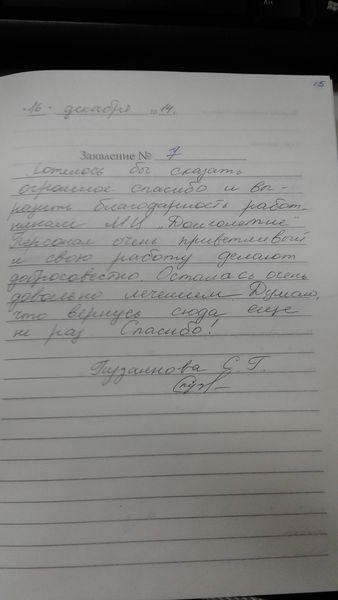 15
"16" декабря 2014.
Заявление № 7
Хотелось бы сказать
огромное спасибо и вы-
разить благодарность работ-
никам МЦ "Долголетие"
Персонал очень приветливый
и свою работу делают
добросовестно. Осталась очень
довольна лечением Думаю,
что вернусь сюда еще
не раз Спасибо!
Пузанкова С.Г.